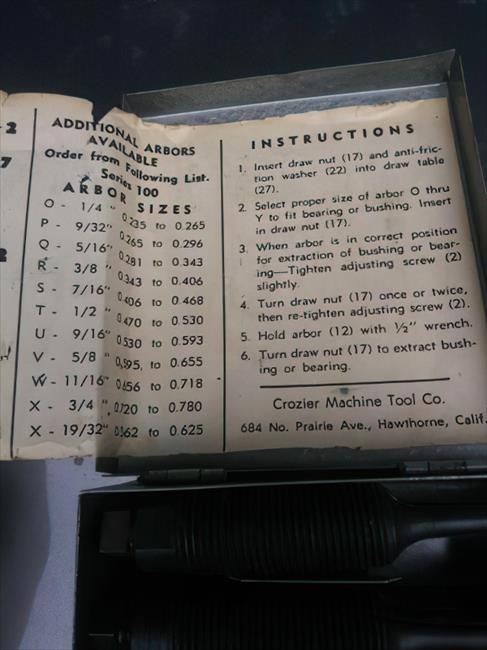 2
7
ADDITIONAL ARBORS
AVAILABLE
Order from Following List.
Series 100
ARBOR SIZES
O - 1/4 " 0.235 to 0.265
P - 9/32" 0.265 to 0.296
Q - 5/16" 0.281 to 0.343
R - 3/8 " 0.343 to 0.406
S - 7/16" 0.406 to 0.468
T - 1/2 " 0.470 to 0.530
U - 9/16" 0.530 to 0.593
V - 5/8 " 0.595, to 0.655
W - 11/16" 0.656 to 0.718
X - 3/4 ", 0.720 to 0.780
X - 19/32" 0.562 to 0.625
INSTRUCTIONS
1. Insert draw nut (17) and anti-fric-
tion washer (22) into draw table
(27).
2. Select proper size of arbor O thru
Y to fit bearing or bushing. Insert
in draw nut (17).
3. When arbor is in correct position
for extraction of bushing or bear-
ing—Tighten adjusting screw (2)
slightly.
4. Turn draw nut (17) once or twice,
then re-tighten adjusting screw (2).
5. Hold arbor (12) with ½" wrench.
6. Turn draw nut (17) to extract bush-
ing or bearing.
Crozier Machine Tool Co.
684 No. Prairie Ave., Hawthorne, Calif.